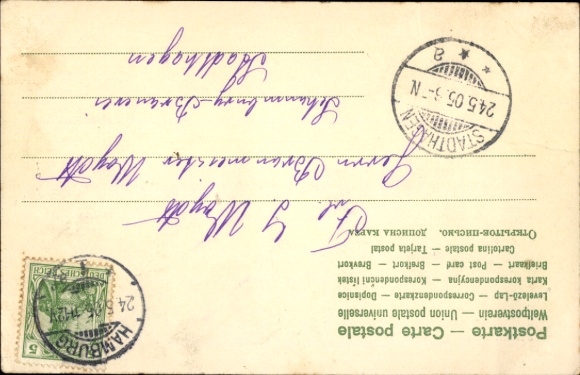 Postkarte — Carte postale
Weltpostverein — Union postale universelle
Levelező-Lap — Correspondenzkarte — Dopisnice
Karta korespondencyjna — Korespondenční lístek
Briefkaart — Post card — Brefkort — Brevkort
Cartolina postale — Tarjeta postal
Открытое-письмо. ДОПИСНА КАРТА
Frl. J. Wagdt
Herrn Braumeister Wagdt
Schaumburg-Brauerei
Stadthagen
5
DEUTSCHES REICH
HAMBURG
STADTHAGEN
24.5.05.6-7N
* * a